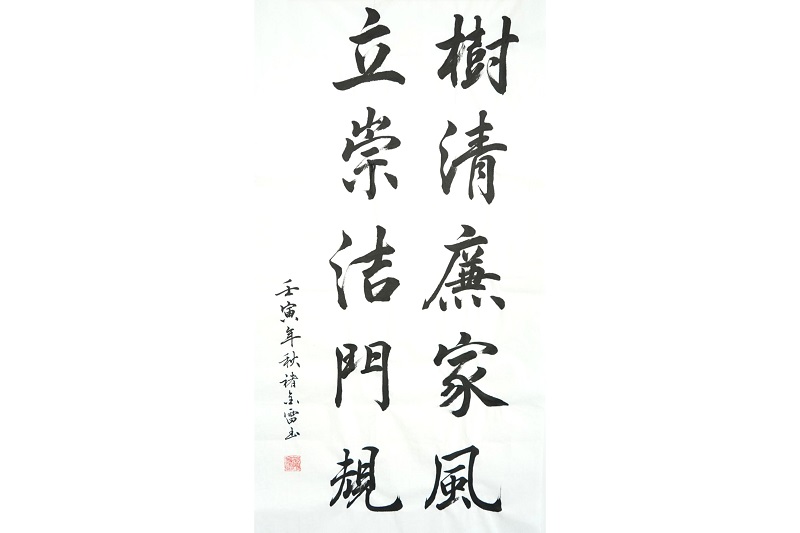 樹清廉家風
立崇洁門規
壬寅年秋褚金雷书